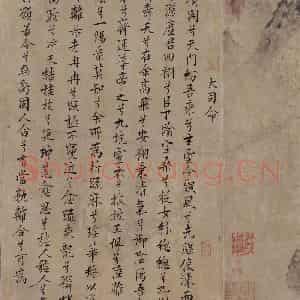 大司命
開兮天門紛吾乘兮玄雲令飄風兮先驅使涷雨
兮灑塵君迴翔兮以下踰空桑兮從女紛總總兮九州
壽夭兮在余高飛兮安翔乘清氣兮御陰陽
兮齊速導帝之兮九坑靈衣兮披披玉佩兮陸離
兮一陽衆莫知兮余所為折疏麻兮瑤華將以遺
離居老冉冉兮既極不寖近兮愈疏乘龍兮轔轔
高馳兮沖天結桂枝兮延佇羌愈思兮愁人愁人兮
願若今兮無虧固人命兮有當孰離合兮可為
Shufawang.CN